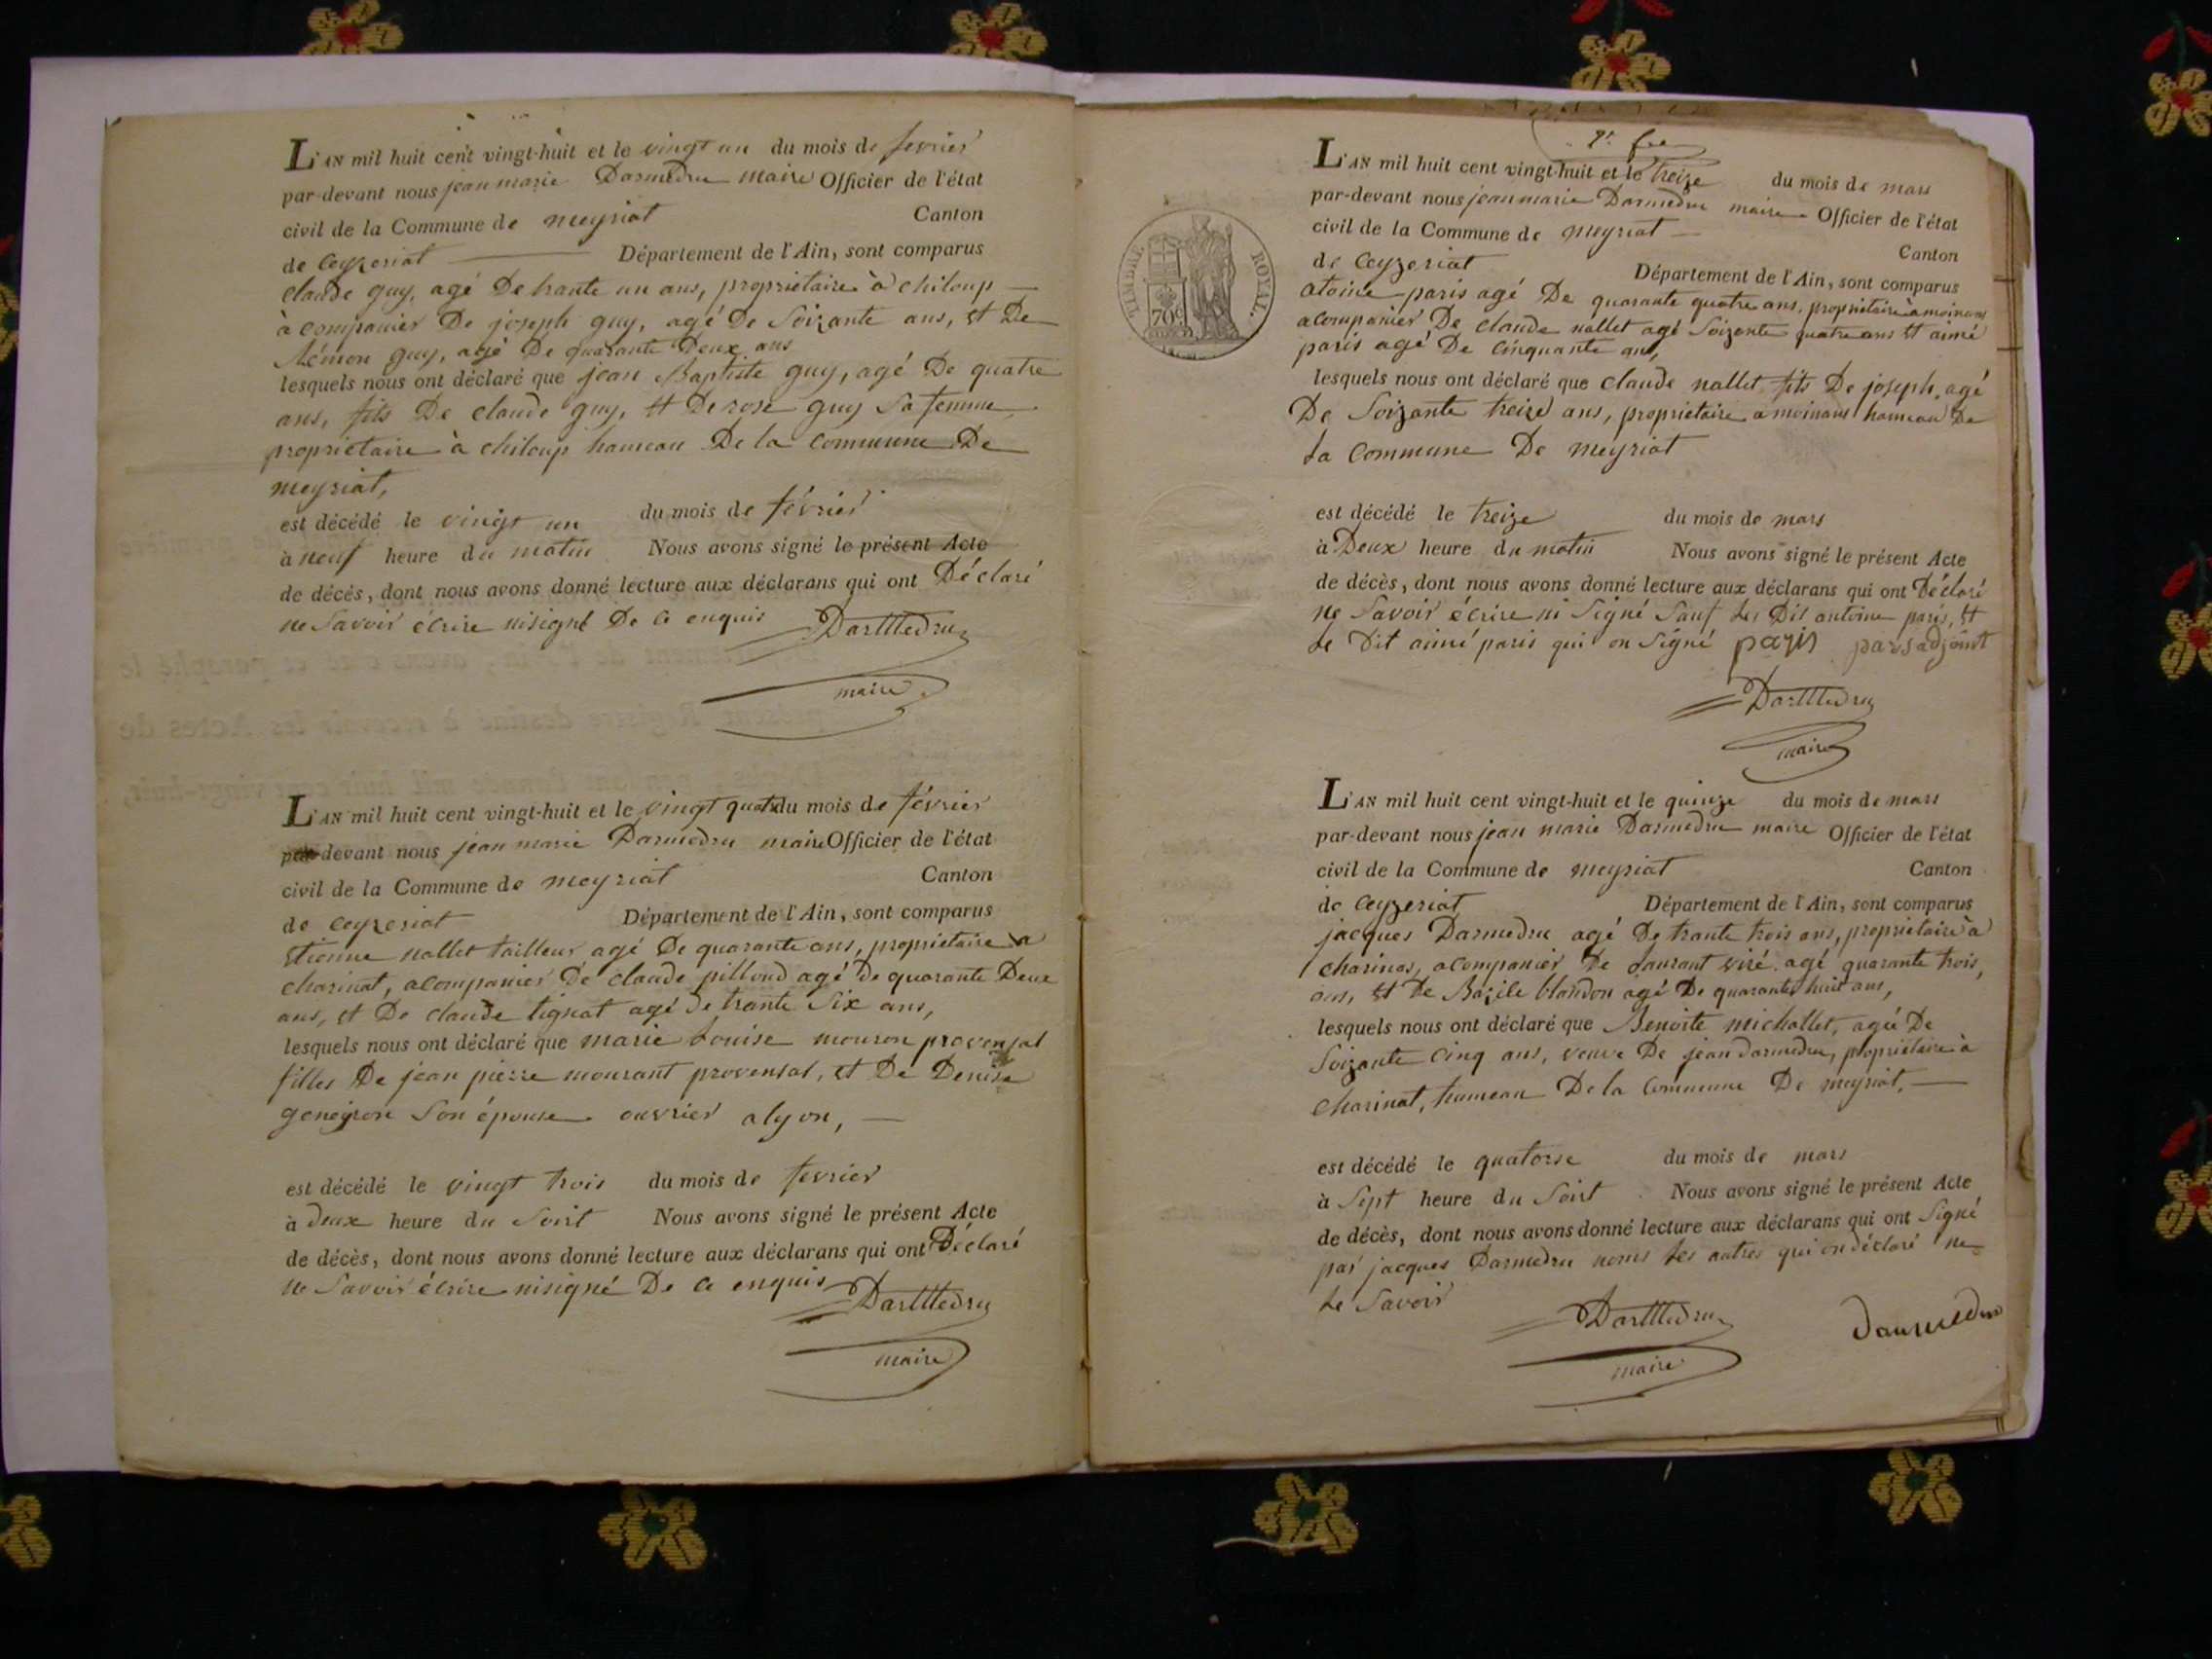 L'AN mil huit cent vingt-huit et le vingt un du mois de fevrier
par-devant nous jean marie Darmedru maire Officier de l'état
civil de la Commune de meyriat Canton
de Ceyzeriat Département de l'Ain, sont comparus
claude guy, agé De trante un ans, propriétaire à chiloup
à companier De joseph guy, agé De Soizante ans, et De
guy, agé De quarante Deux ans
lesquels nous ont déclaré que jean Baptiste guy, agé De quatre
ans, fils De claude guy, et De rose guy sa femme
propriétaire à chiloup hameau De la commune De
meyriat,
est décédé le vingt un du mois de février
à neuf heure du matin Nous avons signé le présent Acte
de décès, dont nous avons donné lecture aux déclarans qui ont Déclaré
ne Savoir écrire ni signé De ce enquis Darmedru
maire
L'AN mil huit cent vingt-huit et le vingt quatre du mois de février
par-devant nous jean marie Darmedru maire Officier de l'état
civil de la Commune de meyriat Canton
de Ceyzeriat Département de l'Ain, sont comparus
Etienne nallet tailleur agé De quarante ans, propriétaire a
charinat, acompanier De claude pilloud agé de quarante Deux
ans, et De claude tignat agé de trante Six ans,
lesquels nous ont déclaré que marie Louise mouron provensal
filles De jean pierre mourant provensal, et De Denise
son épouse ouvrier a lyon,
est décédé le vingt trois du mois de fevrier
à deux heure du Soirt Nous avons signé le présent Acte
de décès, dont nous avons donné lecture aux déclarans qui ont Déclaré
ne Savoir écrire ni signé De ce enquis Darmedru
maire
TIMBRE ROYAL
70c
L'AN mil huit cent vingt-huit et le treize du mois de mars
par-devant nous jean marie Darmedru maire Officier de l'état
civil de la Commune de meyriat Canton
de Ceyzeriat Département de l'Ain, sont comparus
atoine paris agé De quarante quatre ans, propriétaire à moinans
acompanier De claude nallet agé Soizante quatre ans et aimé
paris agé De cinquante ans,
lesquels nous ont déclaré que claude nallet fils De joseph, agé
De Soizante treize ans, propriétaire a moinans hameau De
la commune De meyriat
est décédé le treize du mois de mars
à Deux heure du matin Nous avons signé le présent Acte
de décès, dont nous avons donné lecture aux déclarans qui ont Déclaré
ne Savoir écrire ni Signé Sauf les Dit antoine paris, et
le Dit aimé paris qui on Signé paris paris adjoint
Darmedru
maire
L'AN mil huit cent vingt-huit et le quinze du mois de mars
par-devant nous jean marie Darmedru maire Officier de l'état
civil de la Commune de meyriat Canton
de Ceyzeriat Département de l'Ain, sont comparus
jacques Darmedru agé De trante trois ans, propriétaire à
charinas, acompanier De Laurant viré agé quarante trois
ans, et De Bazile blandon agé De quarante huit ans,
lesquels nous ont déclaré que Benoite michallet, agée De
Soizante cinq ans, veuve De jean darmedru, propriétaire à
charinat, hameau De la commune De meyriat,
est décédé le quatorse du mois de mars
à Sept heure du Soirt Nous avons signé le présent Acte
de décès, dont nous avons donné lecture aux déclarans qui ont Signé
par jacques Darmedru nonis les autres qui on déclaré ne
le Savoir
Darmedru darmedru
maire